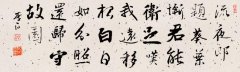 流夜郎
題葵葉
慚君能
衛足嘆
我遠移
根白日
如分照
還歸守
故園